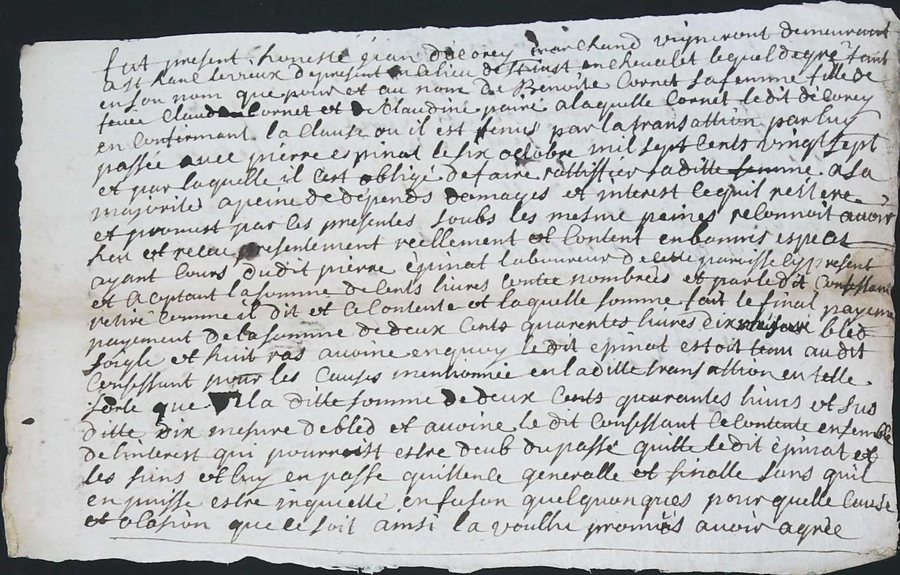 fut present honeste jean décorey marchand vigneront demeurant
a st hant levieux de present en ce lieu de st just en chevalet lequel de gré tant
en son nom que pour et au nom de Benoîte Cornet sa femme fille de
feue Claude Cornet et de Claudine paire a laquelle Cornet ledit décorey
en confirmant la Clause ou il est tenus par la transattion par luy
passée avec pierre espinat le six octobre mil sept cents vingt sept
et par laquelle il est obligé de faire rattiffier sa ditte femme a sa
majorité a peine de dépends domages et interest ce quil reitere
et promest par ces presentes soubs les mesme peines reconnoit avoir
heu et receu presentement reellement et Content en bonnes especes
ayant Cours dudit pierre épinat laboureur de cette parroisse cy present
et acceptant la somme de Cents livres contée nombreés et par ledit Confessant
retiré Comme il dit et ce Contente et laquelle somme fait le final payeme
payement de la somme de deux Cents quarentes livres dix bled
soigle et huit ras avoine en quoy le dit épinat estoit tenu au dit
Confessant pour les Causes mentionnée en la ditte transattion en telle
sorte que la ditte somme de deux Cents quarantes livres et sus
ditte dix mesure de bled et avoine le dit Confessant ce Contente ensemble
de linterest qui pourroist estre deub du passé quitte le dit épinat et
les siens et luy en passe quittence generalle et finalle sans quil
en puisse estre inquietté en fason quelquonques pour quelle Cause
et ocasion que ce soit ainsi la voulhu promis avoir agréé